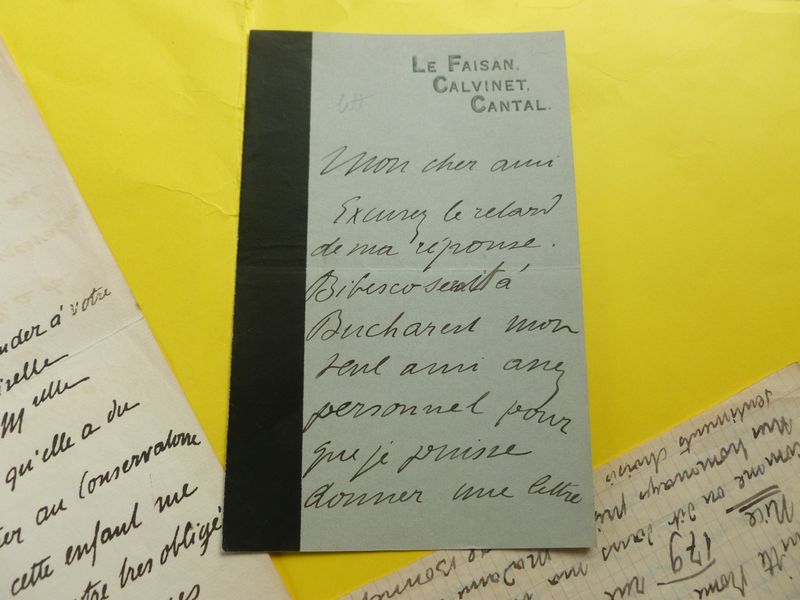 LE FAISAN,
CALVINET,
CANTAL.
lett
Mon cher ami
Excusez le retard
de ma réponse.
Bibesco serait à
Bucharest mon
seul ami assez
personnel pour
que je puisse
donner une lettre
nder à votre
Melle
qu'elle a du
au Conservatoire
cette enfant me
tre très obligé
sentiments choisis
Mes hommages
on dit dans
Nice
179 rue
ma
Madame